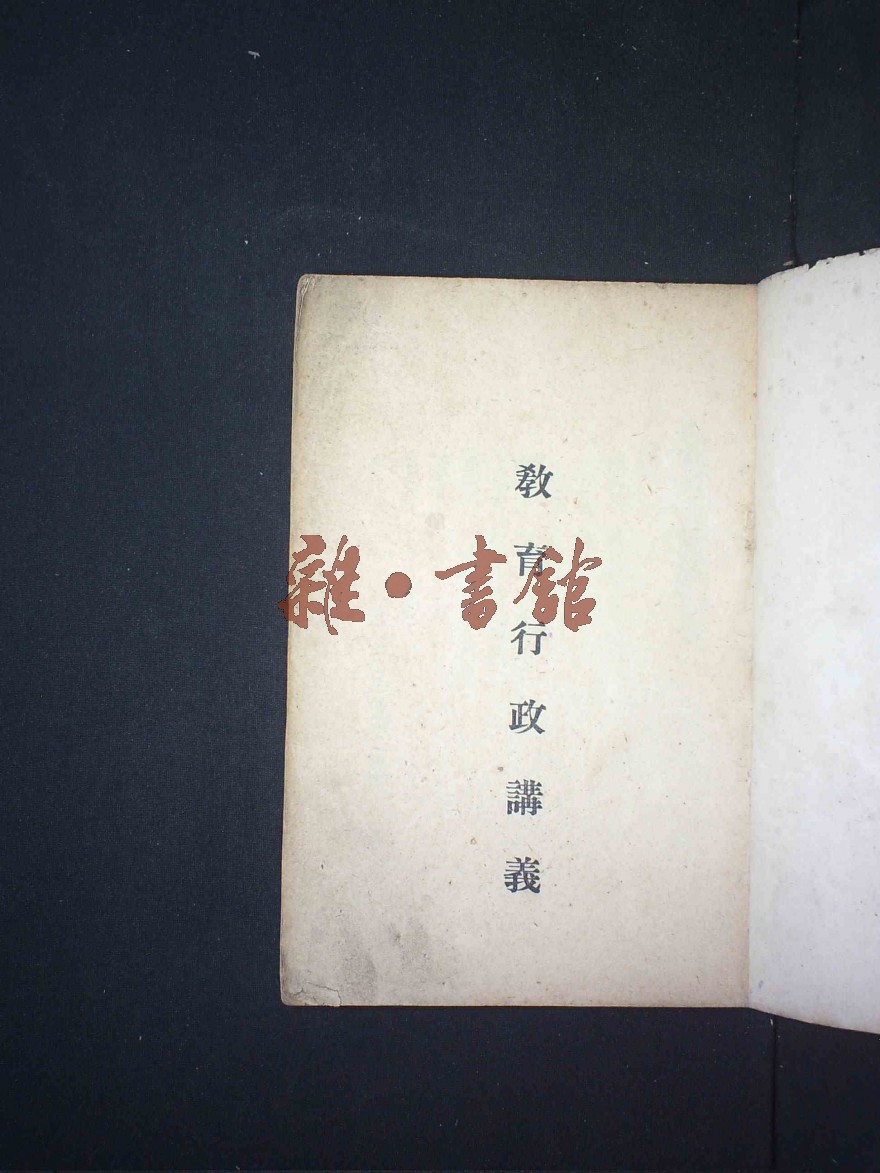 教育行政講義
雜·書館